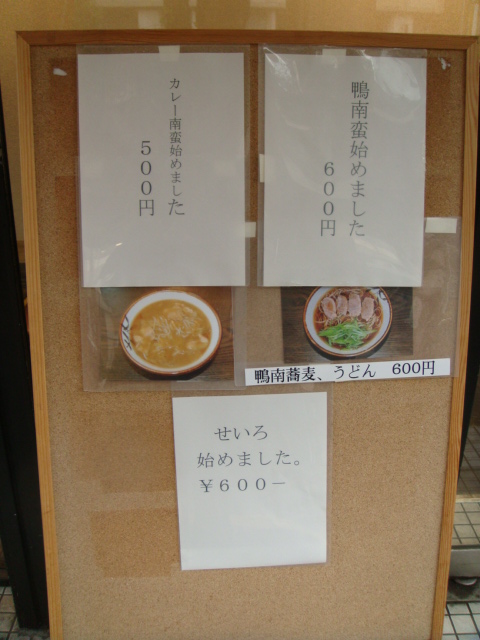 鴨南蛮始めました
６００円
カレー南蛮始めました
５００円
鴨南蕎麦、うどん　600円
せいろ
始めました。
￥６００－